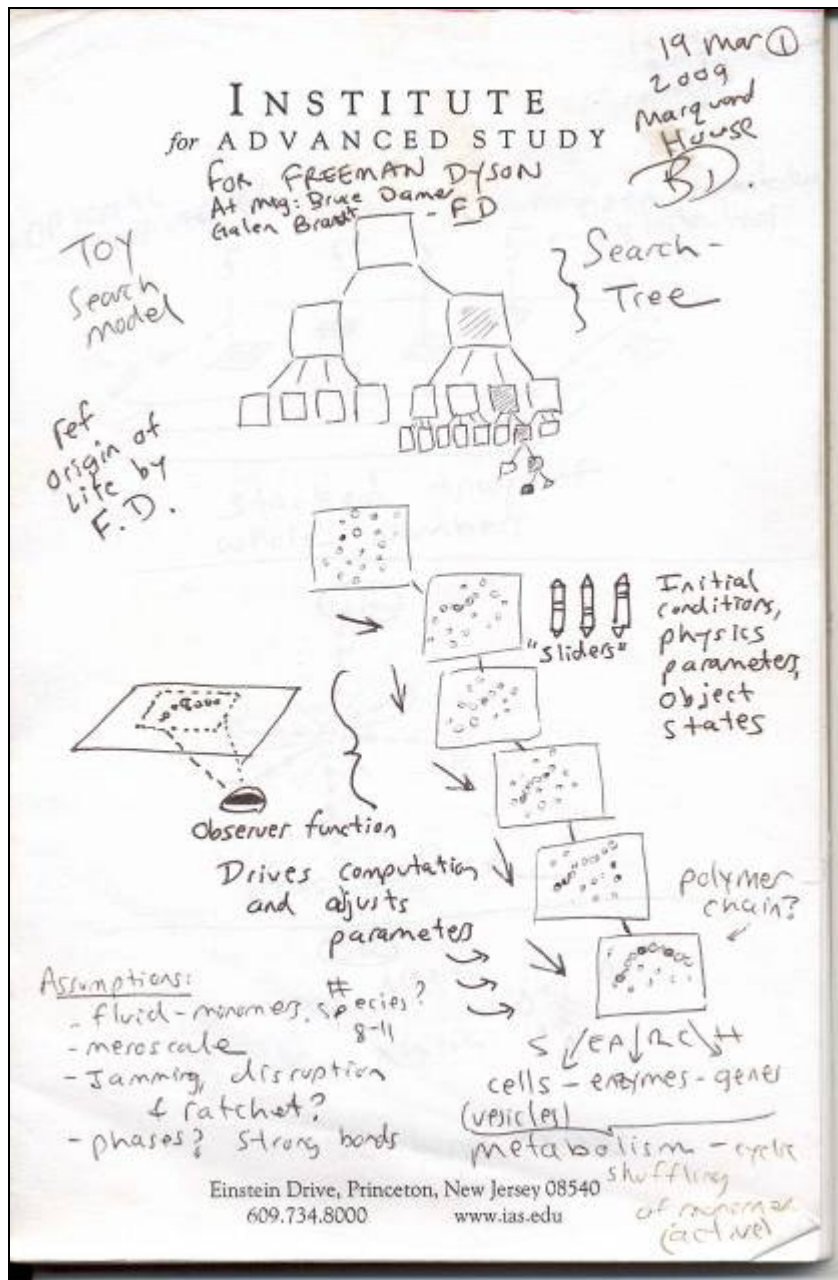 19 Mar ①
2009
Marquand
House
BD.
INSTITUTE
for ADVANCED STUDY
FOR FREEMAN DYSON
At mtg: Bruce Damer
Galen Brandt - FD
Toy
Search
model
Search-
Tree
ref
origin of
Life by
F.D.
"sliders"
Initial
conditions,
physics
parameters,
object
states
Observer function
Drives computation
and ajusts
parameters
polymer
chain?
Assumptions:
- fluid-monomers, # species?
8-11
- meroscale
- Jamming, disruption
& ratchet?
- phases? Strong bonds
S E A R C H
cells - enzymes - genes
(vesicles)
metabolism - cyclic
shuffling
of monomer
(active)
Einstein Drive, Princeton, New Jersey 08540
609.734.8000 www.ias.edu